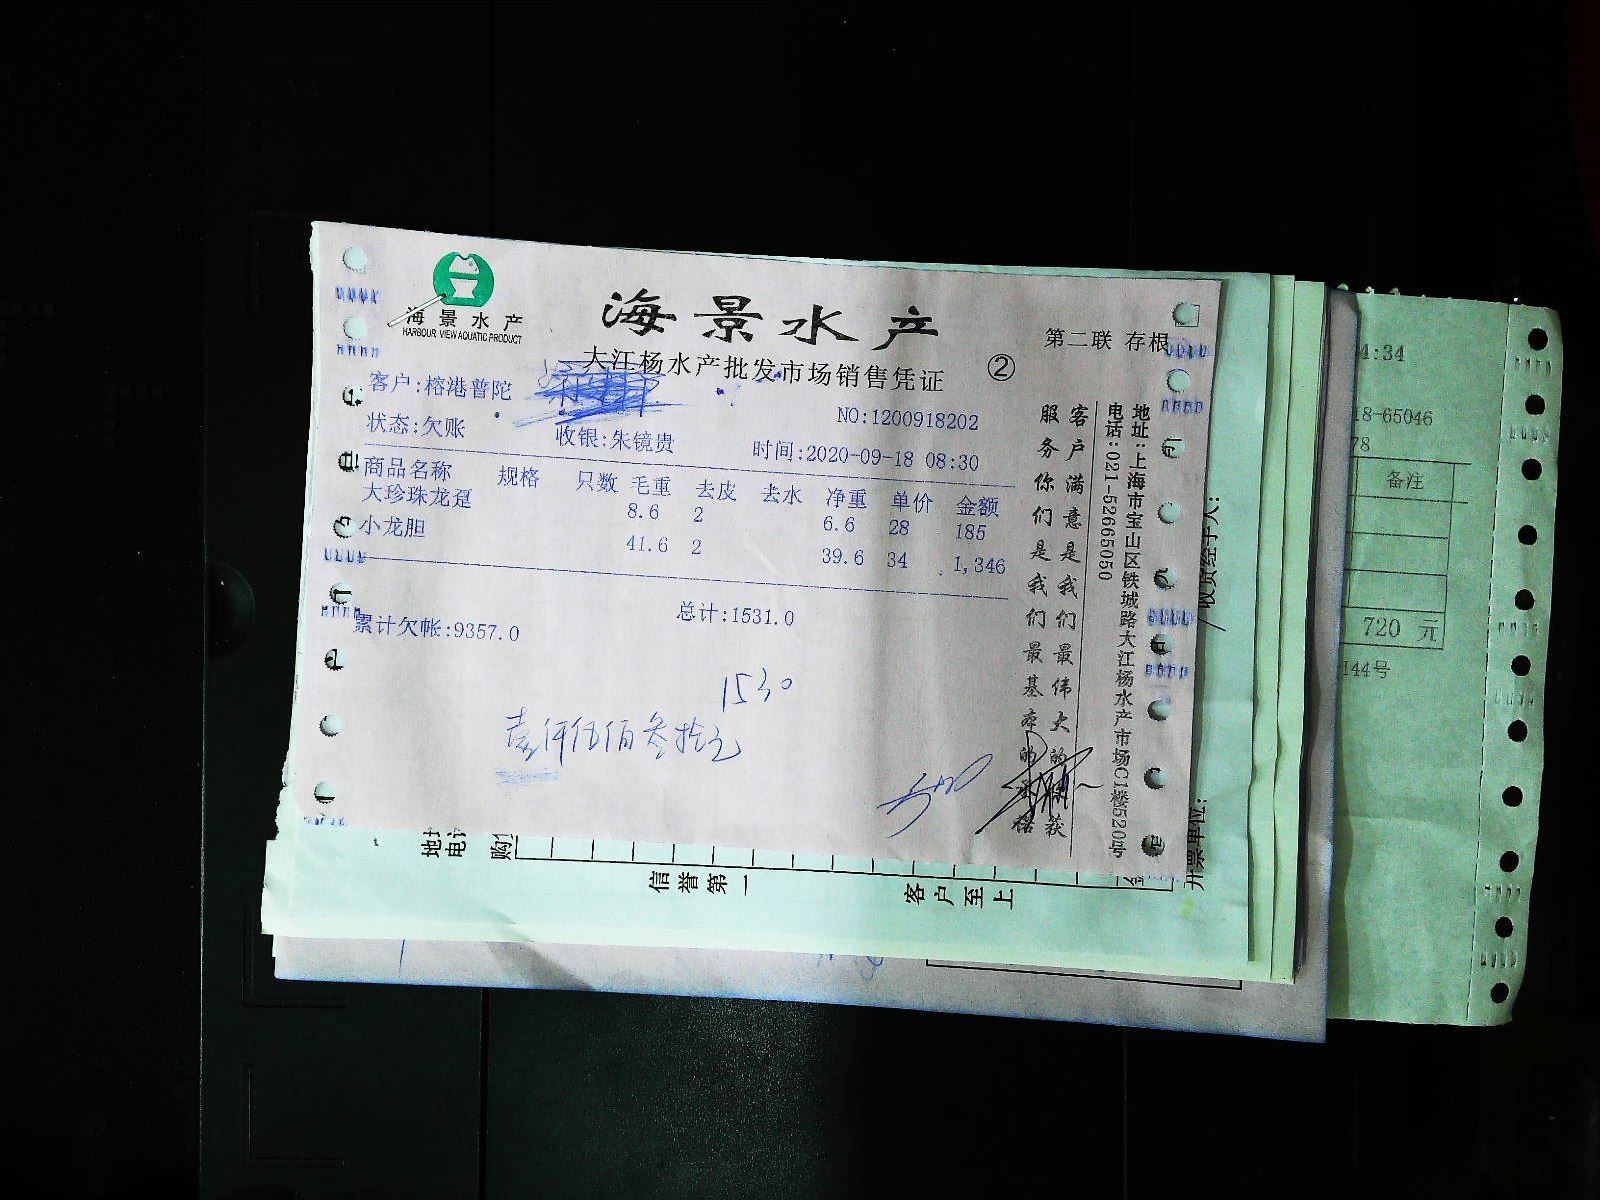 海景水产
HARBOUR VIEW AQUATIC PRODUCT
海景水产
大江杨水产批发市场销售凭证
②
第二联 存根
客户:榕港普陀
NO:1200918202
状态:欠账 收银:朱镜贵 时间:2020-09-18 08:30
商品名称 规格 只数 毛重 去皮 去水 净重 单价 金额
大珍珠龙趸 8.6 2 6.6 28 185
小龙胆 41.6 2 39.6 34 1,346
总计:1531.0
累计欠帐:9357.0
1530
壹仟伍佰叁拾元
客户满意是我们最伟大的收获
服务你们是我们最基本的承诺
地址:上海市宝山区铁城路大江杨水产市场C1楼520号
电话:021-52665050
收货经手人:
开票单位:
信誉第一
客户至上
4:34
18-65046
78
备注
720 元
144号